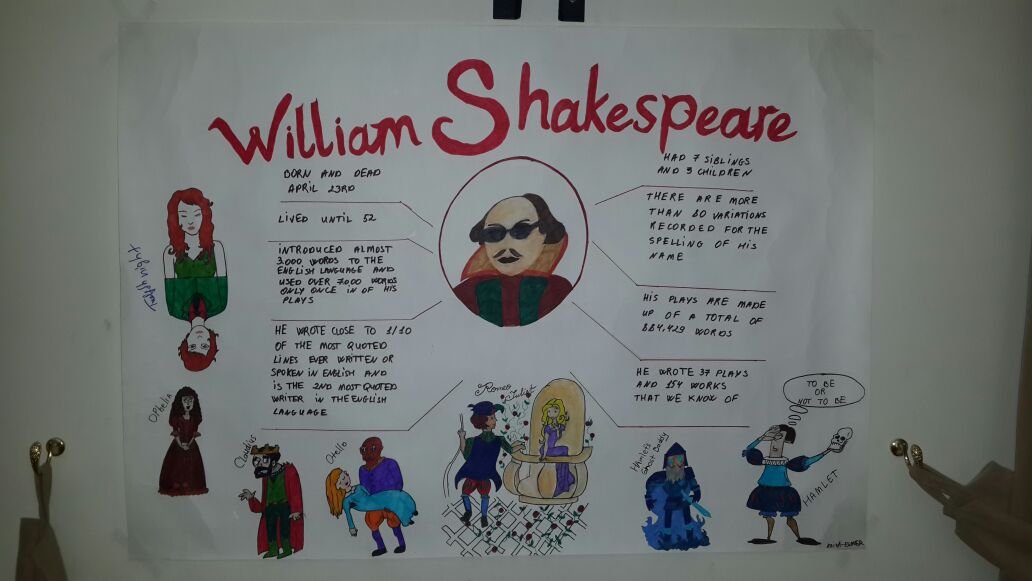 William Shakespeare
BORN AND DEAD
APRIL 23RD
LIVED UNTIL 52
INTRODUCED ALMOST
3.000 WORDS TO THE
ENGLISH LANGUAGE AND
USED OVER 7.000 WORDS
ONLY ONCE IN OF HIS
PLAYS
HE WROTE CLOSE TO 1/10
OF THE MOST QUOTED
LINES EVER WRITTEN OR
SPOKEN IN ENGLISH AND
IS THE 2ND MOST QUOTED
WRITER IN THE ENGLISH
LANGUAGE
HAD 7 SIBLINGS
AND 3 CHILDREN
THERE ARE MORE
THAN 80 VARIATIONS
RECORDED FOR THE
SPELLING OF HIS
NAME
HIS PLAYS ARE MADE
UP OF A TOTAL OF
884,429 WORDS
HE WROTE 37 PLAYS
AND 154 WORKS
THAT WE KNOW OF
Twelfth night
Ophelia
Claudius
Otello
Romeo
Juliet
Hamlet's
Ghost Daddy
TO BE
OR
NOT TO BE
HAMLET